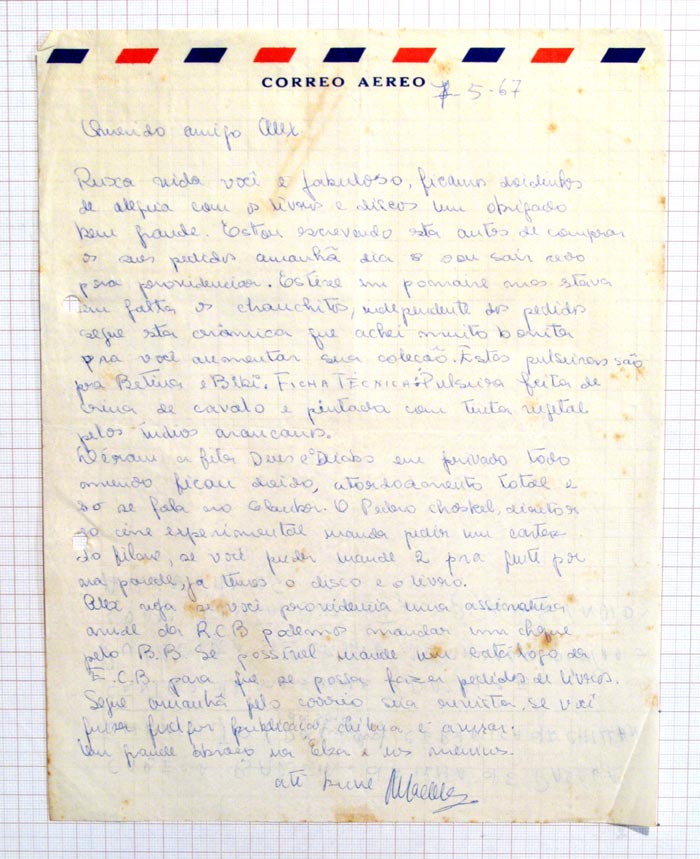 CORREO AEREO
7-5-67
Querido amigo Alex
Puxa vida você é fabuloso, ficamos doidinhos
de alegria com os livros e discos um obrigado
bem grande. Estou escrevendo esta antes de comprar
os seus pedidos amanhã dia 8 vou sair cedo
para providenciar. Estive em pomaire mas estava
em falta os chanchitos, independente dos pedidos
segue esta cerâmica que achei muito bonita
pra você aumentar sua coleção. Estas pulseiras são
pra Betina e Bibi. FICHA TÉCNICA: Pulseira feita de
crina de cavalo e pintada com tinta vegetal
pelos índios araucanos.
Deram a fita Deus e o Diabo em privado todo
mundo ficou doido, atordoamento total e
só se fala no Glauber. O Pedro chaskel, diretor
do cine experimental manda pedir um cartaz
do filme, se você puder mande 2 pra gente por
na parede, já temos o disco e o livro.
Alex veja se você providencia uma assinatura
anual da R.C.B podemos mandar um cheque
pelo B.B. Se possível mande um catálogo da
E.C.B. para que se possa fazer pedidos de livros.
Segue amanhã pelo correio uma revista se você
quiser qualquer publicação chilena é avisar.
Um grande abraço na Elsa e nos meninos.
até breve